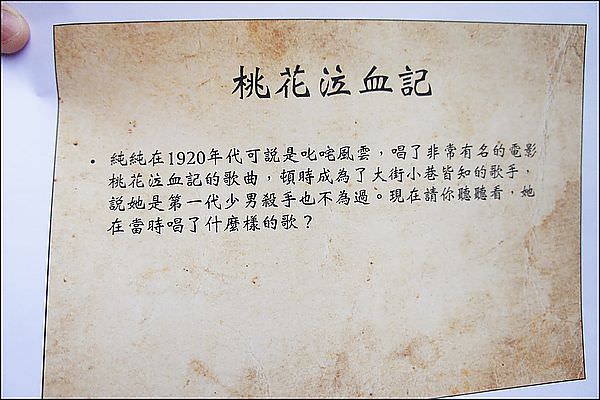 桃花泣血記
• 純純在1920年代可說是叱咤風雲，唱了非常有名的電影
桃花泣血記的歌曲，頓時成為了大街小巷皆知的歌手，
說她是第一代少男殺手也不為過。現在請你聽聽看，她
在當時唱了什麼樣的歌？